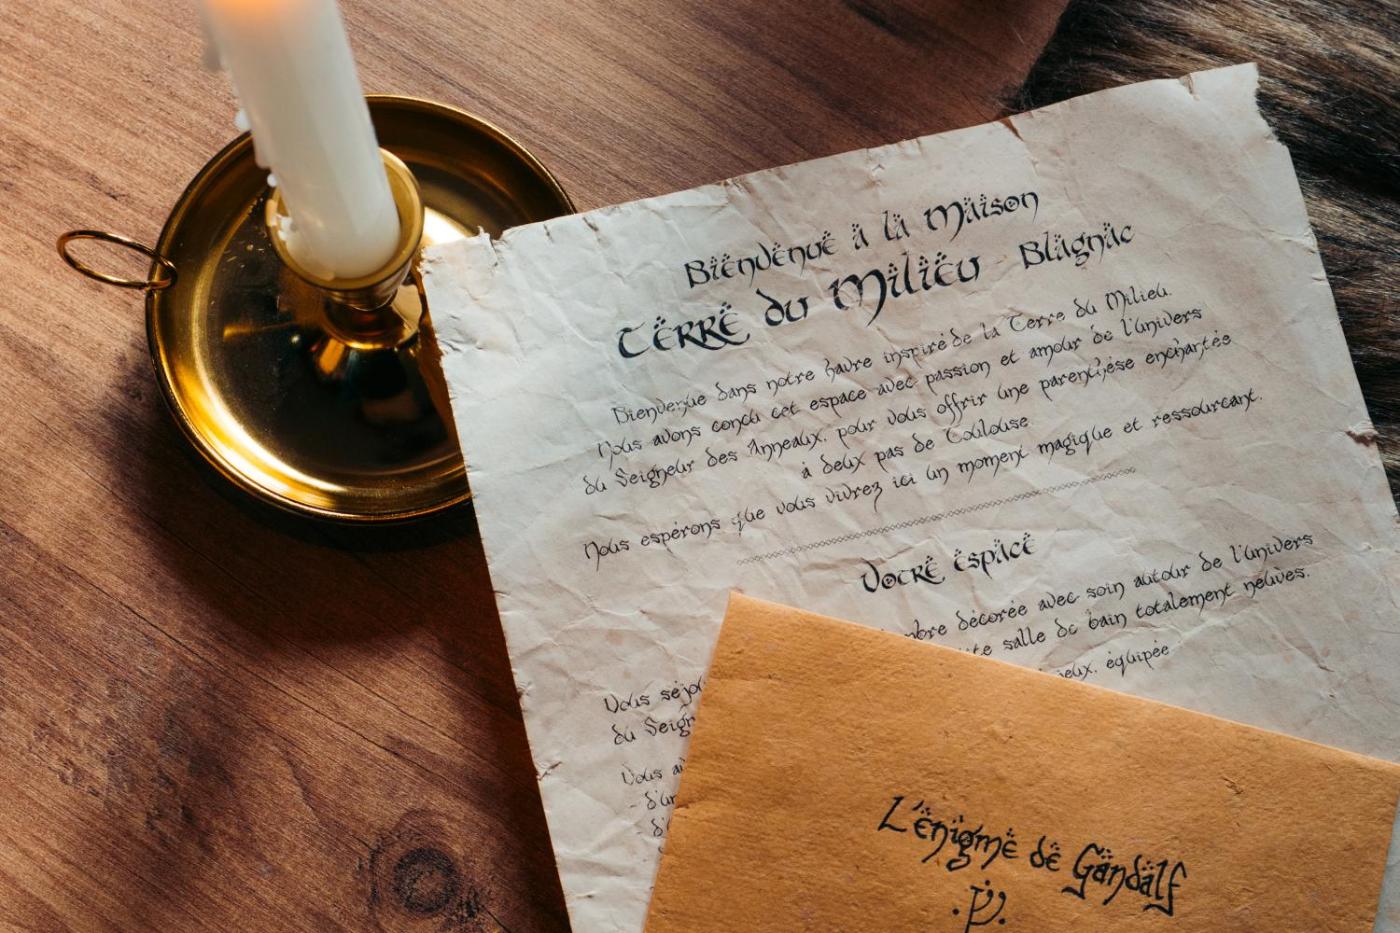 Bienvenue à la Maison
Terre du Milieu Blagnac
Bienvenue dans notre havre inspiré de la Terre du Milieu.
Nous avons conçu cet espace avec passion et amour de l'univers
du Seigneur des Anneaux, pour vous offrir une parenthèse enchantée
à deux pas de Toulouse.
Nous espérons que vous vivrez ici un moment magique et ressourçant.
Votre espace
Vous séjo
du Seign
mbre décorée avec soin autour de l'univers
ite salle de bain totalement neuves.
Vous a
ieux, équipée
- d'un
- d'
L'énigme de Gandalf